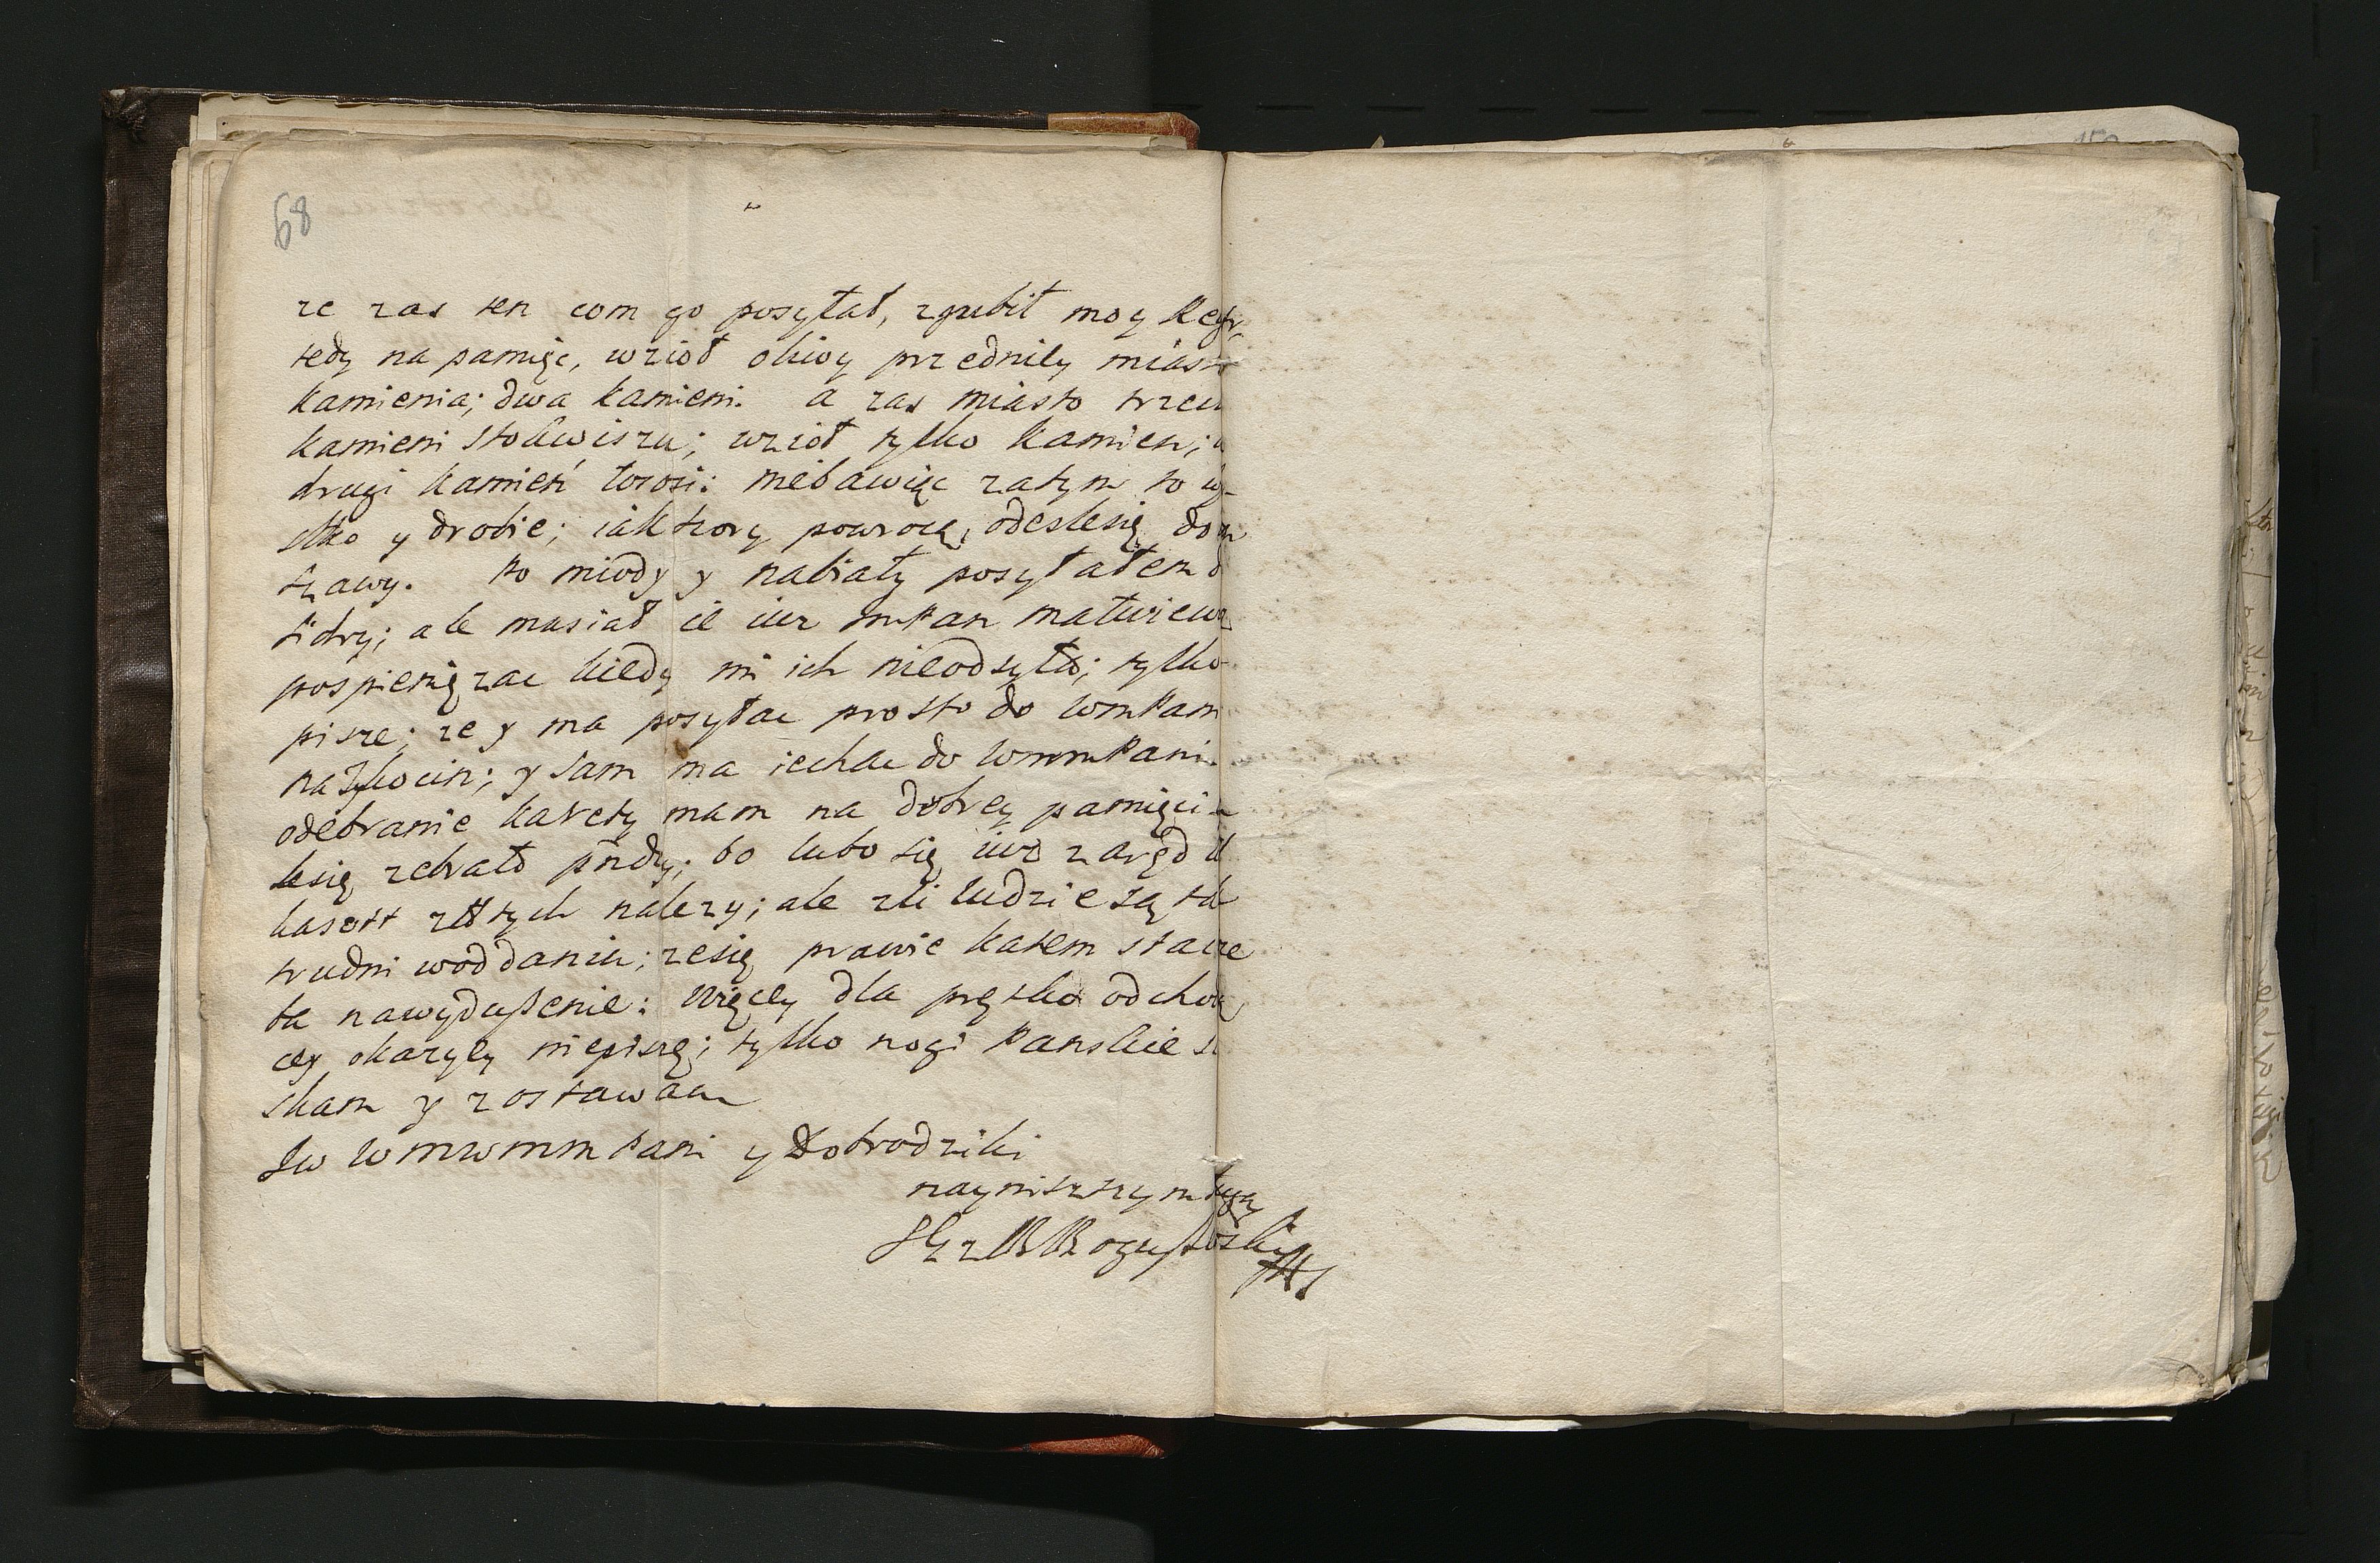 68
ze zas ten com go posyłał, zgubił moy Regr
tedy na pamięc, wzioł oliwy przedniey miasto
kamienia; dwa kamieni. a zas miasto trzech
kamieni Stokwiszu; wzioł tylko kamien; a
drugi kamień łososi: niebawiąc zatym to
stko y drobie; iak powrocą, odeslesię do
szawy. to miody y nabiały posyłałem
ale musiał ie iuz ImPan
pospienięzac kiedy mi ich nieodsyło; tylko
pisze; ze y ma posyłac prosto do WmPani
naTykocin; y sam ma iechac do WmmPani
odebranie karety mam na dobrey pamięci
lesię zebrało pndzy; bo lubo się iuz
złłtych nalezy; ale zli ludzie są
trudni woddaniu; zesię prawie katem
ba nawyduszenie: Więcey dla prętko odchodzą
cey okazyey niepiszę; tylko nogi Panskie sci
skam y zostawam
Jw WmwmmPani y Dobrodziki
naynizszym sługą